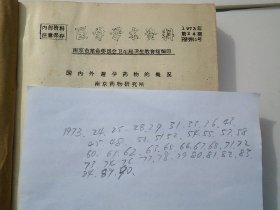 内部资料
注意保存
医学学术资料
1973年
第24期
南京市革命委员会卫生局卫生教育馆编印
国内外避孕药物的概况
南京药物研究所
1973. 24. 25. 28. 29. 31. 35. 36. 43.
45. 48. 50. 51. 52. 54. 55. 57. 58
60. 61. 62. 63. 65. 66. 67. 68. 71. 72
73 74 76 77. 78. 79 80. 81. 82. 83
84. 89 90.